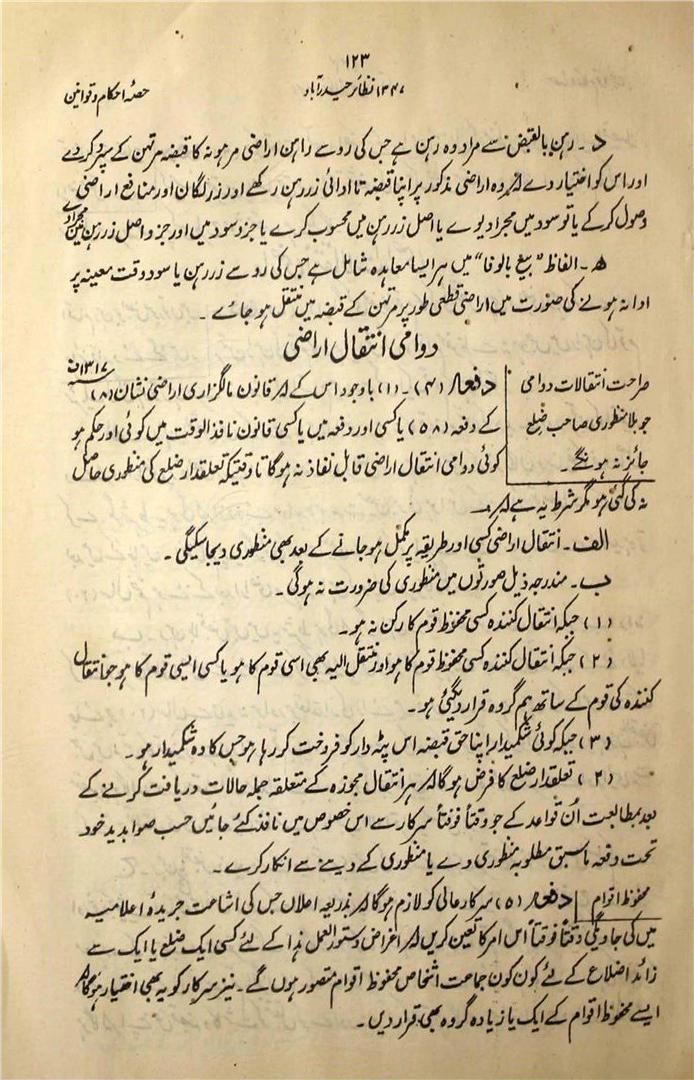 ۱۲۳
۱۳۴۷ نظائر حیدرآباد
حصہ احکام و قوانین
د ۔ رہن بالقبض سے مراد وہ رہن ہے جس کی رو سے راہن اراضی مرہونہ کا قبضہ مرتہن کے سپرد کردے
اور اس کو اختیار دے کہ وہ اراضی مذکور پر اپنا قبضہ تا ادائی زر رہن رکھے اور زر لگان اور منافع اراضی
وصول کرکے یا تو سود میں مجرا دیوے یا اصل زر رہن میں محسوب کرے یا جزو سود میں اور جزو اصل زر رہن میں مجرا دے
ھ ۔ الفاظ "بیع بالوفا" میں ہر ایسا معاہدہ شامل ہے جس کی رو سے زر رہن یا سود وقت معینہ پر
ادا نہ ہونے کی صورت میں اراضی قطعی طور پر مرتہن کے قبضہ میں منتقل ہو جائے ۔
دوامی انتقال اراضی
صراحت انتقالات دوامی
جو بلا منظوری صاحب ضلع
جائز نہ ہونگے ۔
دفعہ (۴) ۔ (۱) باوجود اس کے کہ قانون مالگزاری اراضی نشان (۸) ۱۳۱۷ ف
کے دفعہ (۵۸) یا کسی اور دفعہ میں یا کسی قانون نافذ الوقت میں کوئی اور حکم ہو
کوئی دوامی انتقال اراضی قابل نفاذ نہ ہوگا تا وقتیکہ تعلقدار ضلع کی منظوری حاصل
نہ کی گئی ہو مگر شرط یہ ہے کہ :۔
الف ۔ انتقال اراضی کسی اور طریقہ پر مکمل ہو جانے کے بعد بھی منظوری دیجا سکیگی ۔
ب ۔ مندرجہ ذیل صورتوں میں منظوری کی ضرورت نہ ہوگی ۔
(۱) جبکہ انتقال کنندہ کسی محفوظ قوم کا رکن نہ ہو ۔
(۲) جبکہ انتقال کنندہ کسی محفوظ قوم کا ہو اور منتقل الیہ بھی اسی قوم کا ہو یا کسی ایسی قوم کا ہو جو انتقال
کنندہ کی قوم کے ساتھ ہم گروہ قرار دیگئی ہو ۔
(۳) جبکہ کوئی شکمیدار اپنا حق قبضہ اس پٹہ دار کو فروخت کر رہا ہو جس کا وہ شکمیدار ہو ۔
(۲) تعلقدار ضلع کا فرض ہوگا کہ ہر انتقال مجوزہ کے متعلقہ جملہ حالات دریافت کرنے کے
بعد بمطابعت اُن قواعد کے جو وقتاً فوقتاً سرکار سے اس خصوص میں نافذ کئے جائیں حسب صوابدید خود
تحت دفعہ ماسبق مطلوبہ منظوری دے یا منظوری کے دینے سے انکار کرے ۔
محفوظ اقوام
دفعہ (۵) سرکار عالی کو لازم ہوگا کہ بذریعہ اعلان جس کی اشاعت جریدۂ اعلامیہ
میں کی جاویگی وقتاً فوقتاً اس امر کا تعین کریں کہ اغراض دستور العمل ہذا کے لئے کسی ایک ضلع یا ایک سے
زائد اضلاع کے لئے کون کون جماعت اشخاص محفوظ اقوام متصور ہوں گے ۔ نیز سرکار کو یہ بھی اختیار ہوگا کہ
ایسے محفوظ اقوام کے ایک یا زیادہ گروہ بھی قرار دیں ۔